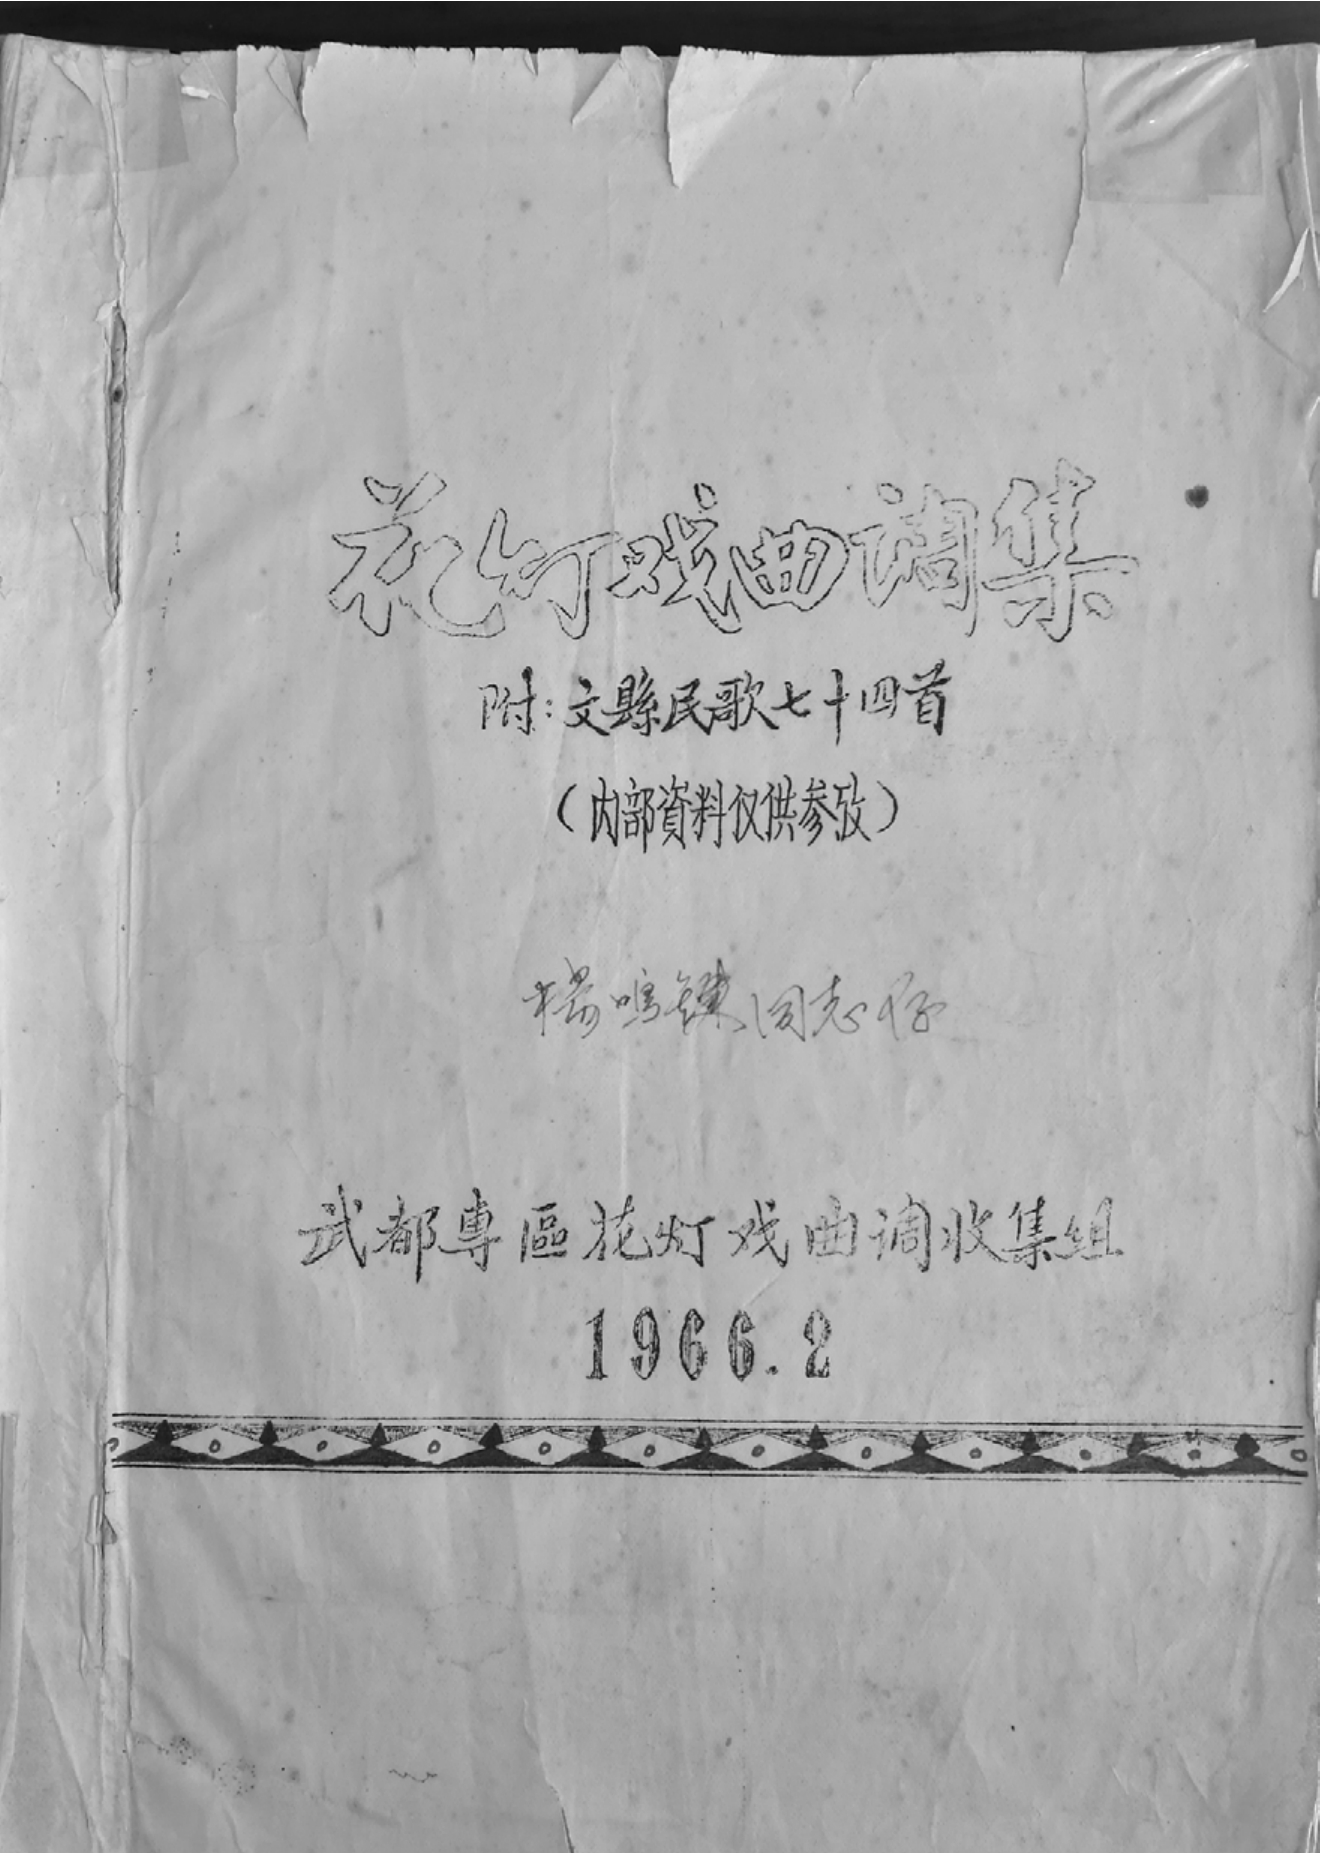 花灯戏曲调集
附:文縣民歌七十四首
(内部資料仅供参攷)
楊鸣键同志存
武都專區花灯戏曲调收集组
1966.2